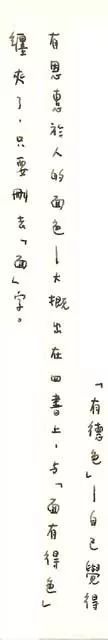 「有德色」—自己覺得
有恩惠於人的面色—大概出在四書上,与「面有得色」
纏夾了,只要刪去「面」字。